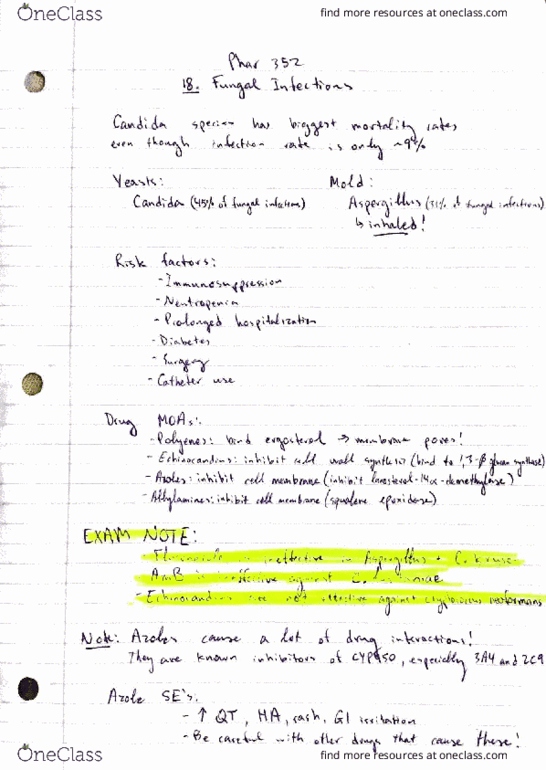 OneClass
find more resources at oneclass.com
Phar 352
18. Fungal Infections
Candida species has biggest mortality rates
even though infection rate is only ~9%
Yeasts: Mold:
Candida (45% of fungal infections) Aspergillus (31% of fungal infections)
↳ inhaled!
Risk factors:
- Immunosuppression
- Neutropenia
- Prolonged hospitalization
- Diabetes
- Surgery
- Catheter use
Drug MOAs:
- Polyenes: bind ergosterol → membrane pores!
- Echinocandins: inhibit cell wall synthesis (bind to 1,3-β glucan synthase)
- Azoles: inhibit cell membrane (inhibit lanosterol-14α-demethylase)
- Allylamines: inhibit cell membrane (squalene epoxidase)
EXAM NOTE:
- ineffective in Aspergillus + C. krusei
AmB is ineffective against C.
- Echinocandins are not effective against cryptococcus neoformans
Note: Azoles cause a lot of drug interactions!
They are known inhibitors of CYP450, especially 3A4 and 2C9
Azole SE's:
- ↑ QT, HA, rash, GI irritation
- Be careful with other drugs that cause these!
OneClass
find more resources at oneclass.com